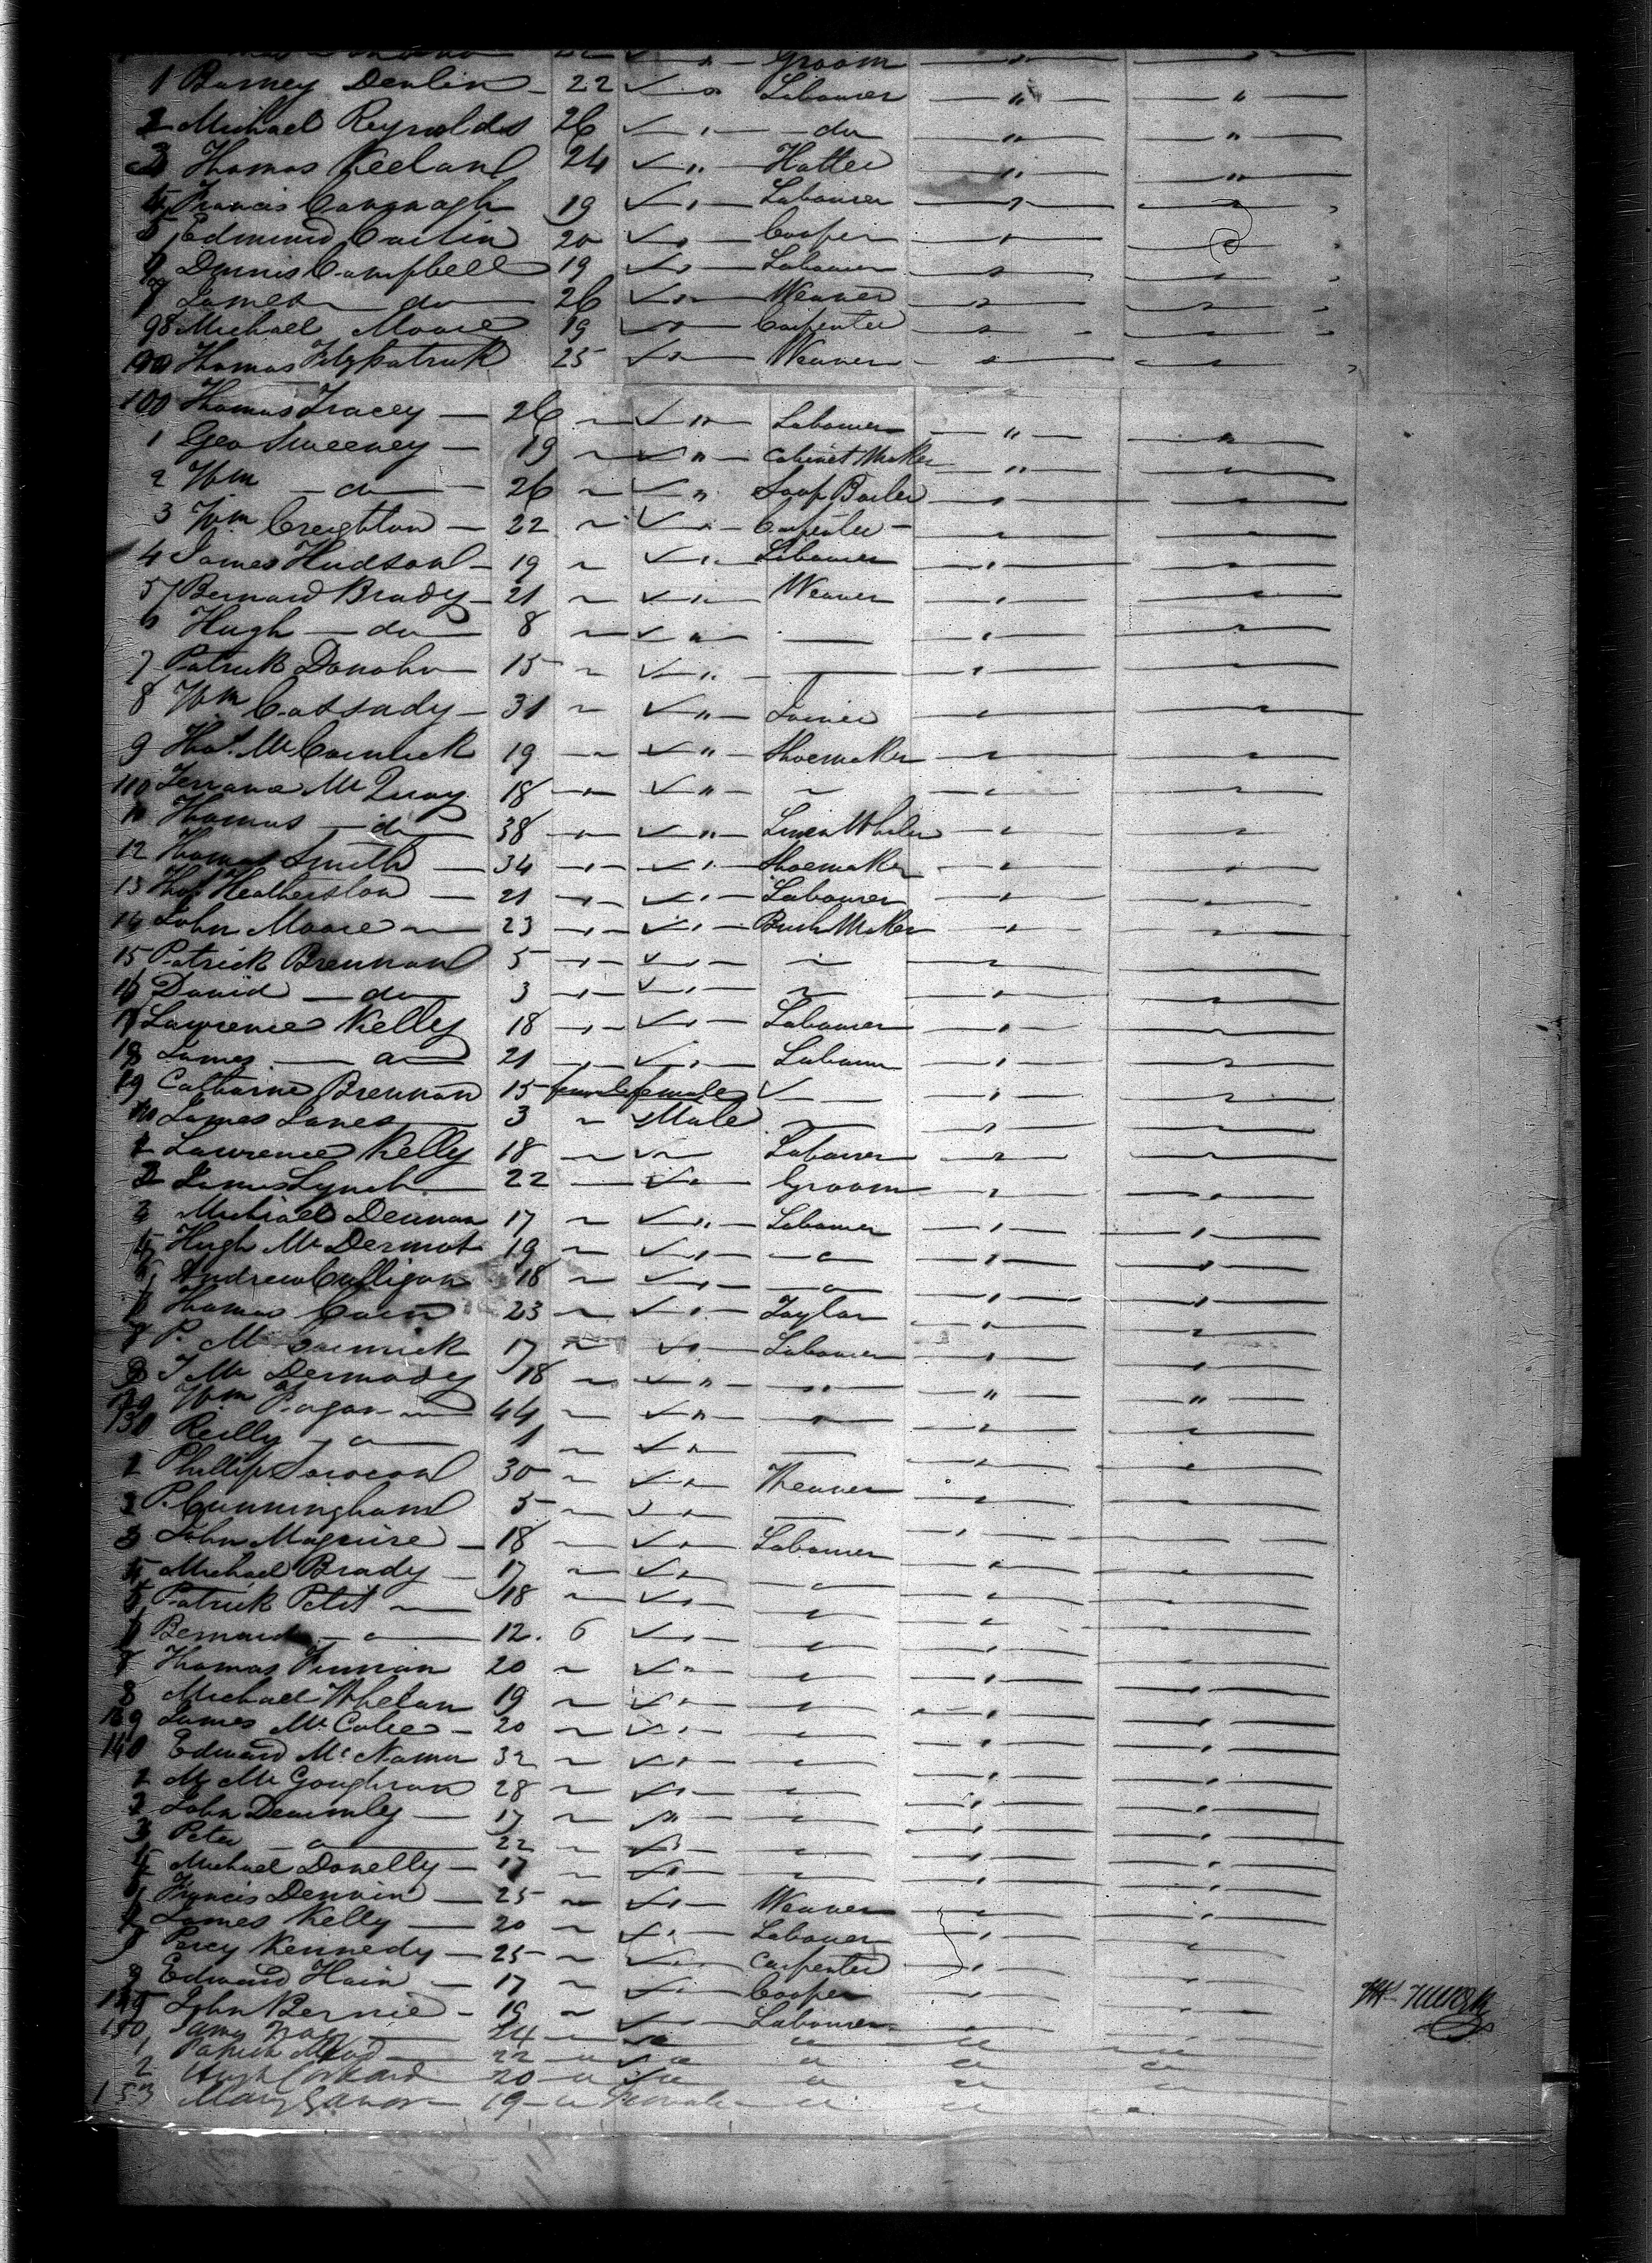 Groom
1 Barney Denlin 22 ✓ " Labourer " "
2 Michael Reynolds 26 ✓ " do " "
3 Thomas Keeland 24 ✓ " Hatter " "
4 Francis Cavanagh 19 ✓ " Labourer " "
5 Edmund Carlin 20 ✓ " Cooper " "
6 Dennis Campbell 19 ✓ " Labourer " "
7 James do 26 ✓ " Weaver " "
98 Michael Moore 19 ✓ " Carpenter " "
Thomas Fitzpatrick 25 ✓ " Weaver " "
100 Thomas Tracey 26 ✓ " Labourer " "
1 Geo Sweeney 19 ✓ " Cabinet Maker " "
2 Wm do 26 ✓ " Soap Boiler " "
3 Wm Creighton 22 ✓ " Carpenter " "
4 James Hudson 19 ✓ " Labourer " "
5 Bernard Brady 21 ✓ " Weaver " "
6 Hugh do 8 ✓ " — " "
7 Patrick Donohu 15 ✓ " — " "
8 Wm Cassady 31 ✓ " Joiner " "
9 Thos. McCormick 19 ✓ " Shoemaker " "
110 Terrance Mc 18 ✓ " "
11 Thomas do 38 " ✓ " Linen " "
12 Thomas Smith 34 " ✓ " Shoemaker " "
13 Thos Heatherston 21 " ✓ " Labourer " "
14 John Moore 23 " ✓ " Brush Maker " "
15 Patrick Brennan 5 " ✓ " " "
16 David do 3 " ✓ " " "
17 Lawrence Kelly 18 " ✓ " Labourer " "
18 James do 21 " ✓ " Labourer " "
19 Catharine Brennan 15 female female ✓ " "
James Lanes 3 Male " "
1 Lawrence Kelly 18 ✓ Labourer " "
2 James Lynch 22 ✓ " Groom " "
3 Michael Dennan 17 ✓ " Labourer " "
4 Hugh McDermot 19 ✓ " " " "
5 Andrew Culligan 18 ✓ " " " "
6 Thomas Cain 23 ✓ " Taylor " "
7 P. McCormick 17 ✓ " Labourer " "
8 J McDermody 18 ✓ " " " "
129 Wm Fagan 44 ✓ " " " "
130 Reilly " 1 ✓ " — " "
1 Phillip 30 ✓ " Weaver " "
2 P. Cunningham 5 ✓ " — " "
3 John Maguire 18 ✓ " Labourer " "
4 Michael Brady 17 ✓ " " " "
5 Patrick Petit 18 ✓ " " " "
6 Bernard " 12. 6 ✓ " " " "
7 Thomas Finnan 20 ✓ " " " "
8 Michael Whelan 19 ✓ " " " "
139 James McCabe 20 ✓ " " " "
140 Edward McNamar 32 ✓ " " " "
1 M McGoughran 28 ✓ " " " "
2 John 17 " " " "
3 Peter " 22 ✓ " " " "
4 Michael Donelly 17 ✓ " " " "
Francis Dennin 25 ✓ " Weaver " "
James Kelly 20 ✓ " Labourer " "
Percy Kennedy 25 ✓ " Carpenter " "
Edward Hain 17 ✓ " Cooper " "
John Bernie 19 ✓ Labourer " "
150 James 24 " " " "
1 Patrick Mead 22 " ✓ " " " "
2 Hugh 20 " ✓ " " " "
153 Mary 19 " Female " " "